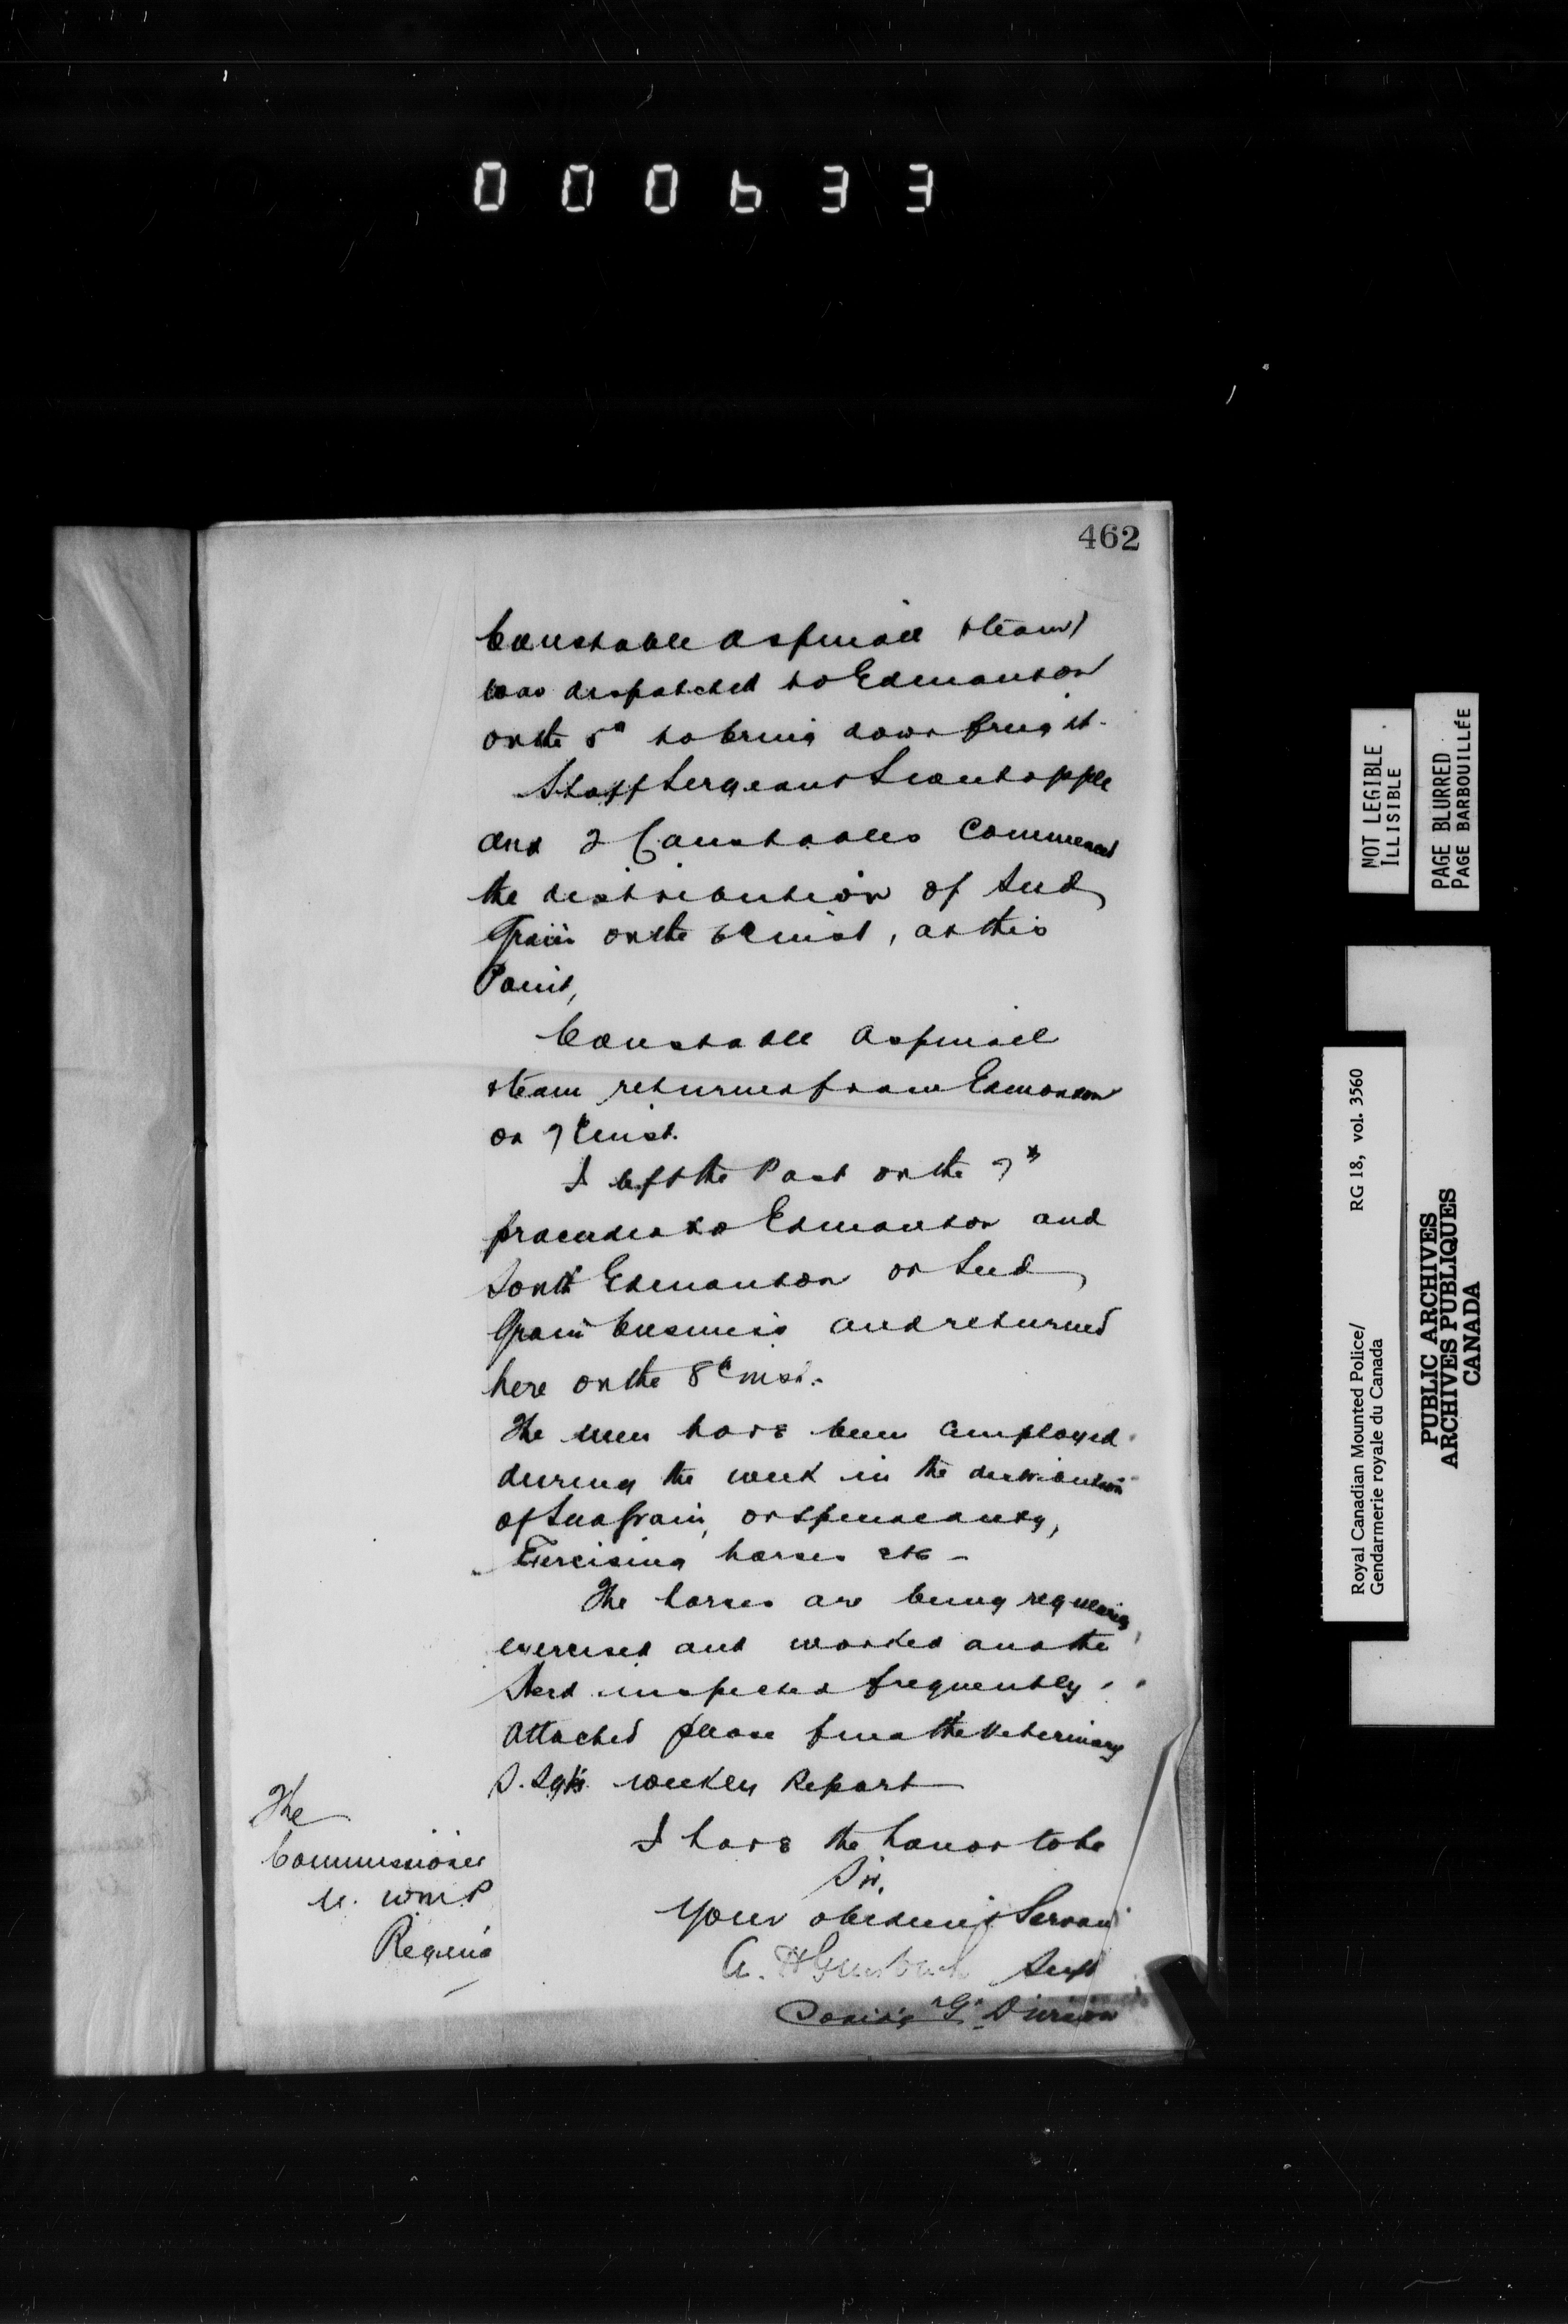 000633
462
Constable Aspinall & team
was despatched to Edmonton
on the 5th to bring down freight.
Staff Sergeant
and 2 Constables Commenced
the distribution of Seed
Grain on the 6th inst, at this
Point,
Constable Aspinall
& team returned from Edmonton
on 7th inst.
I left the Post on the 7th
proceeded to Edmonton and
South Edmonton on Seed
Grain business and returned
here on the 8th inst.
The men have been employed
during the week in the distribution
of Seed Grain,
Exercising horses etc -
The horses are being regularly
exercised and worked and the
Herd inspected frequently.
Attached please find the Veterinary
S. Sgt's weekly Report
I have the honor to be
Sir,
Your obedient Servant
A. H Griesbach Supt
Comd'g "G" Division
The
Commissioner
N. W M. P
Regina
NOT LEGIBLE
ILLISIBLE
PAGE BLURRED
PAGE BARBOUILLÉE
Royal Canadian Mounted Police/ RG 18, vol. 3560
Gendarmerie royale du Canada
PUBLIC ARCHIVES
ARCHIVES PUBLIQUES
CANADA